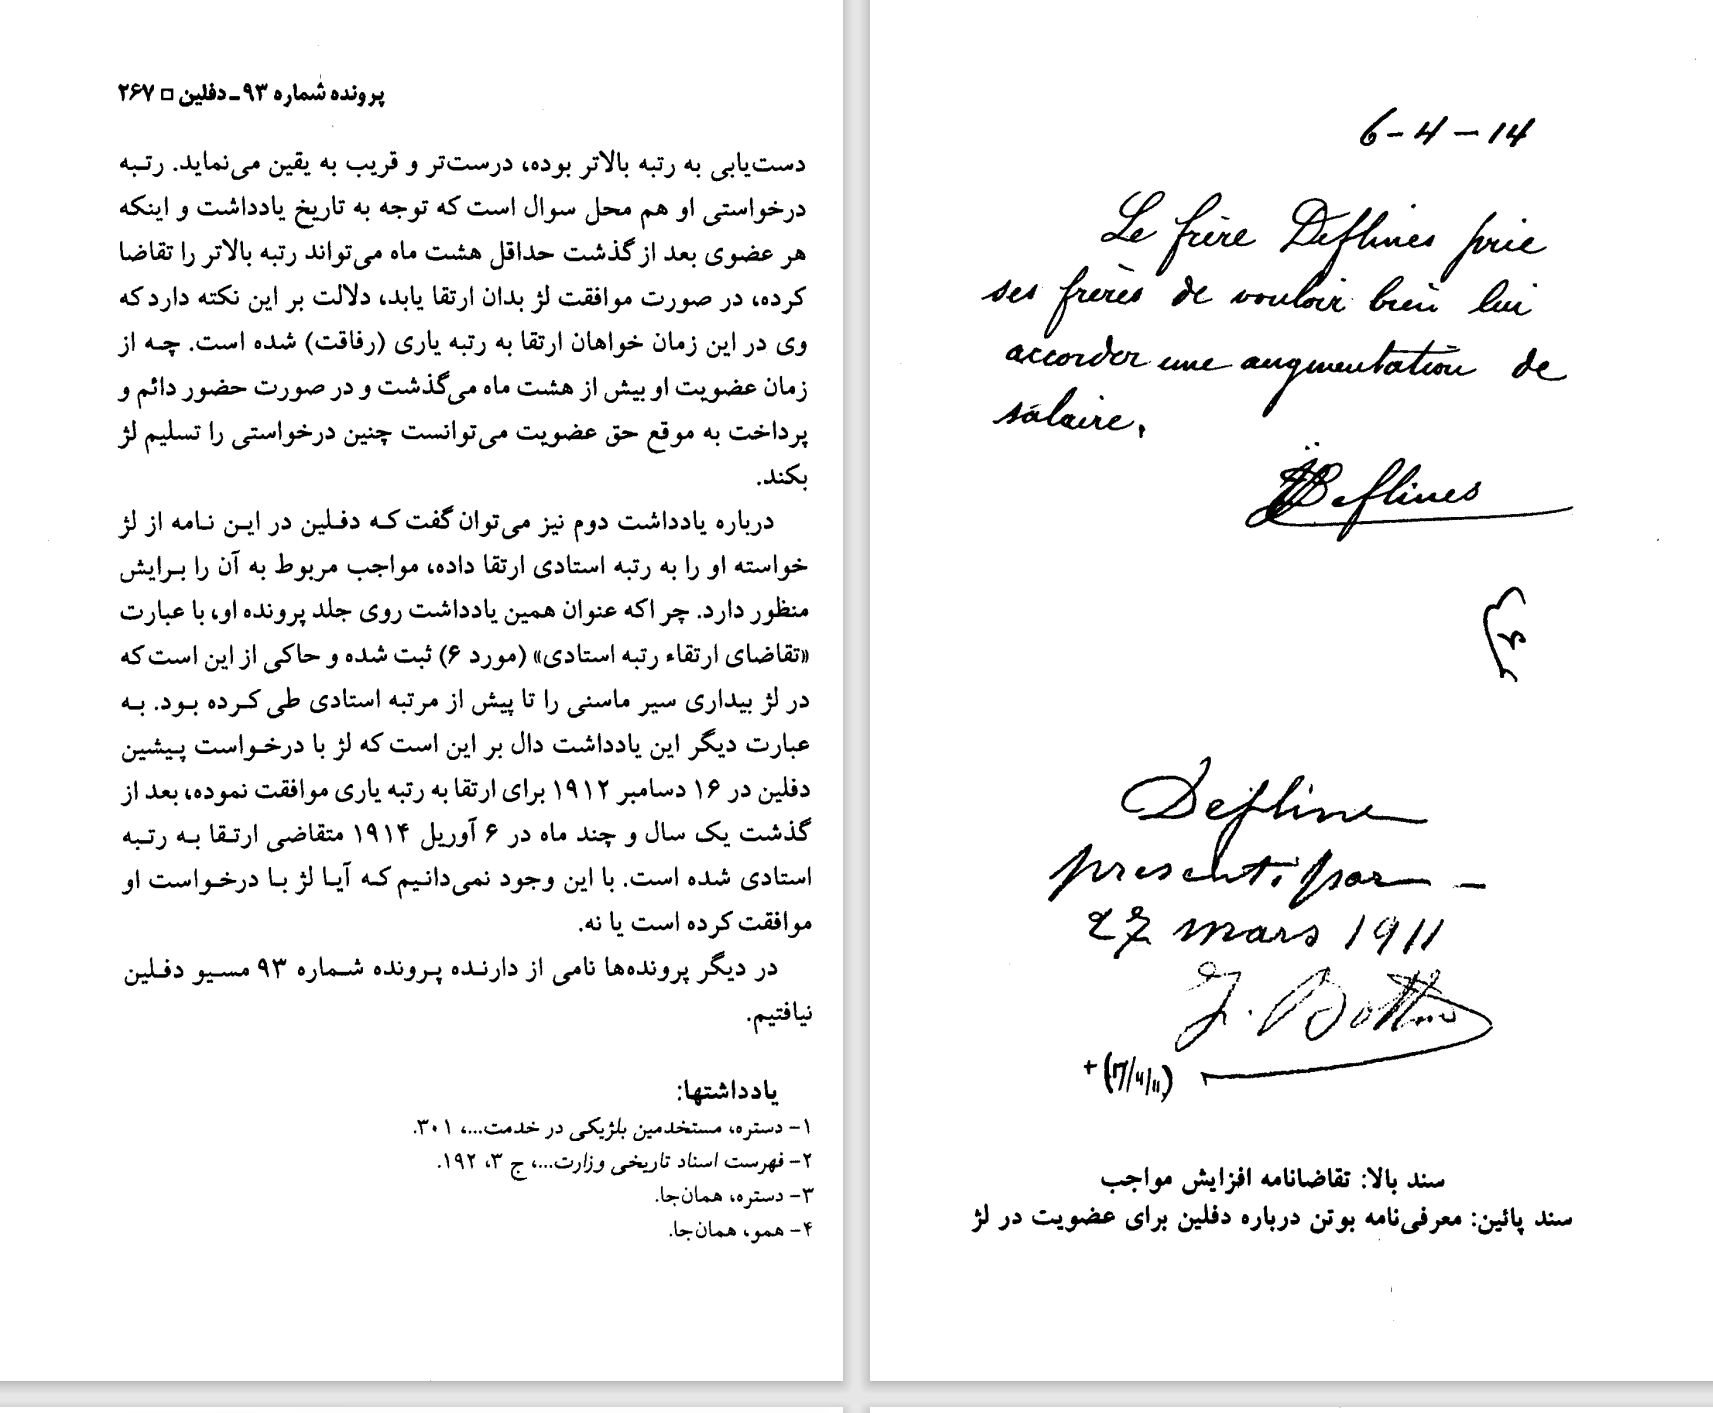 پرونده شماره ۹۳ـ دفلین □ ۲۶۷
دست‌یابی به رتبه بالاتر بوده، درست‌تر و قریب به یقین می‌نماید. رتبه
درخواستی او هم محل سوال است که توجه به تاریخ یادداشت و اینکه
هر عضوی بعد از گذشت حداقل هشت ماه می‌تواند رتبه بالاتر را تقاضا
کرده، در صورت موافقت لژ بدان ارتقا یابد، دلالت بر این نکته دارد که
وی در این زمان خواهان ارتقا به رتبه یاری (رفاقت) شده است. چه از
زمان عضویت او بیش از هشت ماه می‌گذشت و در صورت حضور دائم و
پرداخت به موقع حق عضویت می‌توانست چنین درخواستی را تسلیم لژ
بکند.
درباره یادداشت دوم نیز می‌توان گفت که دفلین در این نامه از لژ
خواسته او را به رتبه استادی ارتقا داده، مواجب مربوط به آن را برایش
منظور دارد. چر اکه عنوان همین یادداشت روی جلد پرونده او، با عبارت
«تقاضای ارتقاء رتبه استادی» (مورد ۶) ثبت شده و حاکی از این است که
در لژ بیداری سیر ماسنی را تا پیش از مرتبه استادی طی کرده بود. به
عبارت دیگر این یادداشت دال بر این است که لژ با درخواست پیشین
دفلین در ۱۶ دسامبر ۱۹۱۲ برای ارتقا به رتبه یاری موافقت نموده، بعد از
گذشت یک سال و چند ماه در ۶ آوریل ۱۹۱۴ متقاضی ارتقا به رتبه
استادی شده است. با این وجود نمی‌دانیم که آیا لژ با درخواست او
موافقت کرده است یا نه.
در دیگر پرونده‌ها نامی از دارنده پرونده شماره ۹۳ مسیو دفلین
نیافتیم.
یادداشتها:
۱- دستره، مستخدمین بلژیکی در خدمت...، ۳۰۱.
۲- فهرست اسناد تاریخی وزارت...، ج ۳، ۱۹۲.
۳- دستره، همان‌جا.
۴- همو، همان‌جا.
6-4-14
Le frère Deflines prie
ses frères de vouloir bien lui
accorder une augmentation de
salaire.
Deflines
Defline
present. par -
27 mars 1911
J. Bottin
+ (17/4/11)
سند بالا: تقاضانامه افزایش مواجب
سند پائین: معرفی‌نامه بوتن درباره دفلین برای عضویت در لژ